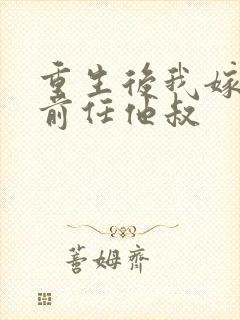 重生後我嫁
前任他叔
蓍姆齊